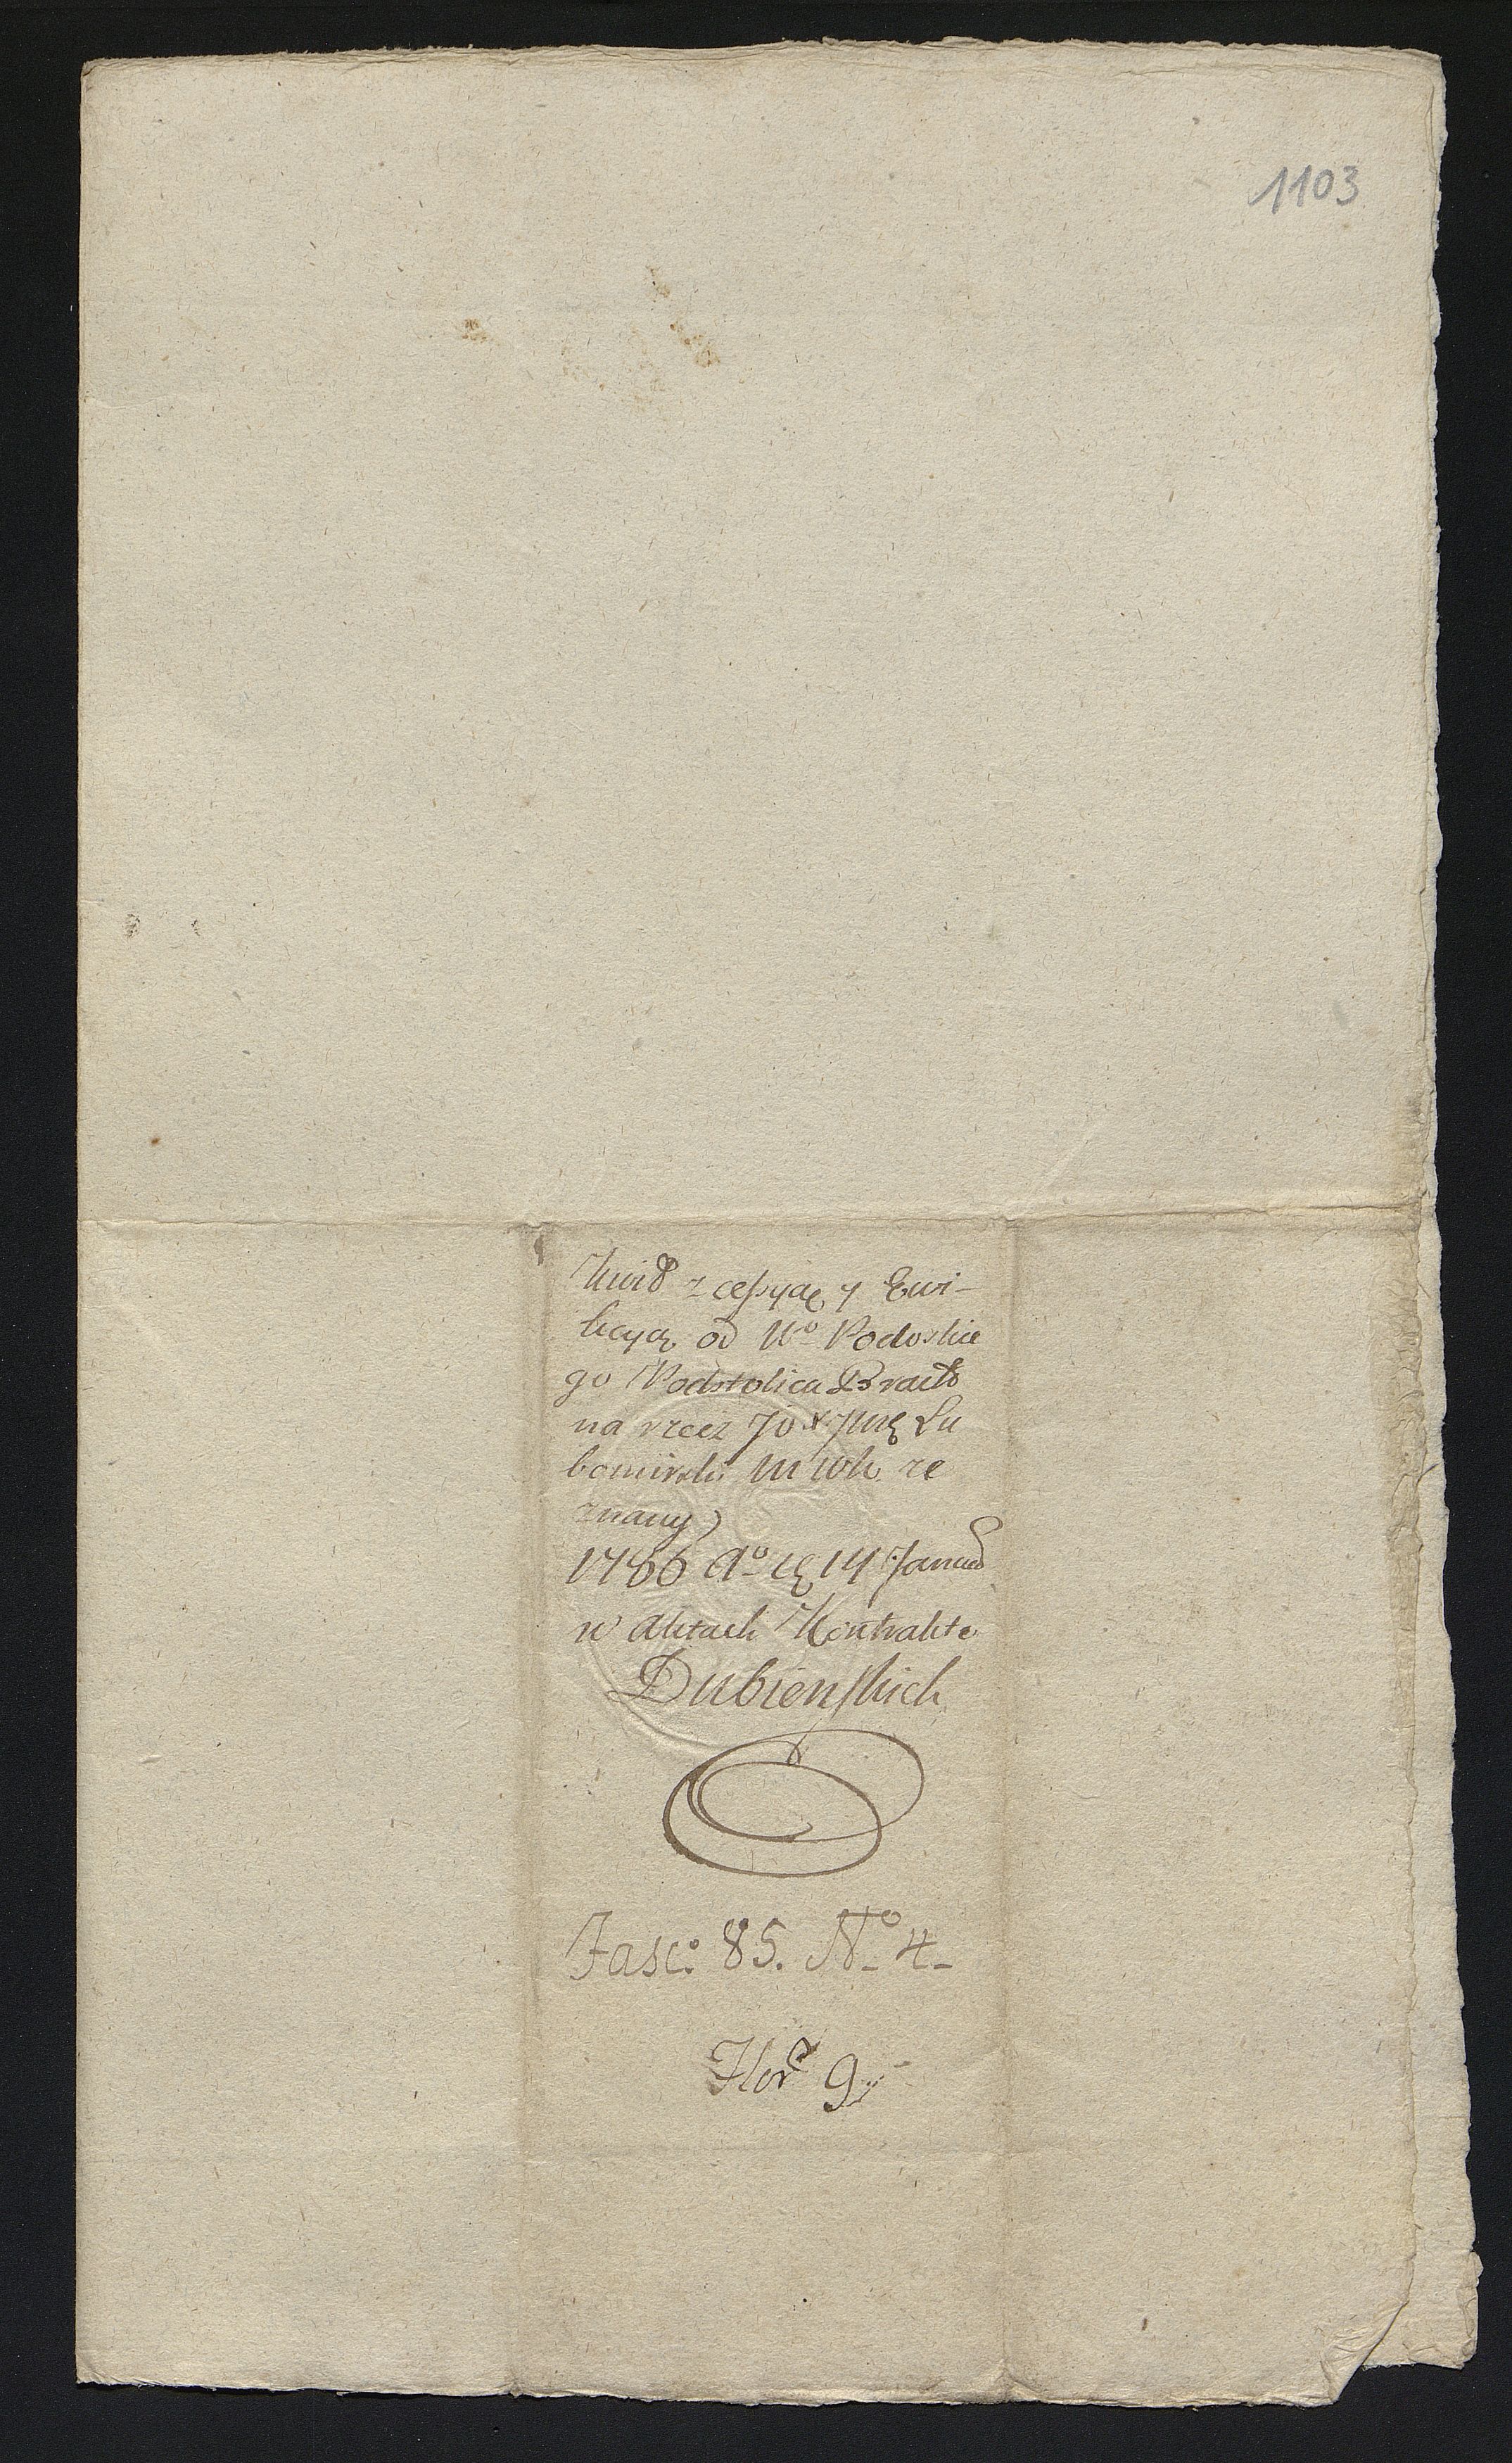 1103
Kwit z cessyą y Ewi-
kcyą od Wo Podoskie
go Podstolica Bracło
na rzecz JO X JMę Lu
bomirski W Wk ze
znany
1786 Ao 14 Januar
w Aktach Kontrakto
Dubienskich
Fasc: 85. No 4-
Flor 9